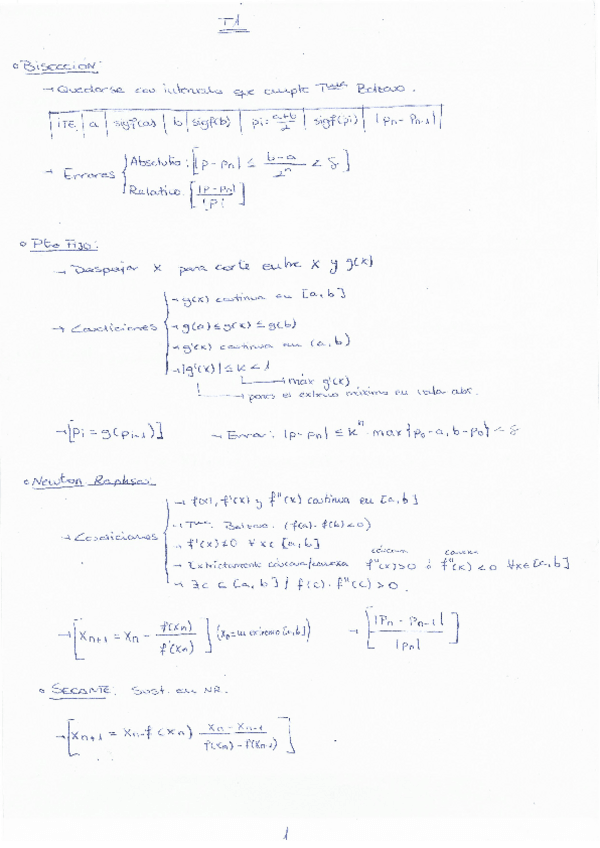 T1
• BISECCIÓN:
→ Quedarse con intervalo que cumple Tma Bolzano.
| ITE | a | sigf(a) | b | sigf(b) | pi = a+b/2 | sigf(pi) | |pn - pn-1| |
→ Errores { Absoluto: [|p - pn| ≤ b-a/2^n < δ]
Relativo [|p - pn|/|p|]
• Pto Fijo:
→ Despejar x para corte entre x y g(x)
→ Condiciones { → g(x) continua en [a, b]
→ g(a) ≤ g(x) ≤ g(b)
→ g'(x) continua en (a, b)
→ |g'(x)| ≤ k < 1
→ máx g'(x)
→ pones el extremo máximo en valor abs.
→ [pi = g(pi-1)] → Error: |p - pn| ≤ k^n · max{p0 - a, b - p0} < δ
• Newton Raphson:
→ f(x), f'(x) y f''(x) continua en [a, b]
→ Tma. Bolzano. (f(a) · f(b) < 0)
→ Condiciones { → f'(x) ≠ 0 ∀x ∈ [a, b]
→ Estrictamente cóncava/convexa cóncava f''(x) > 0 ó convexa f''(x) < 0 ∀x ∈ [a, b]
→ ∃c ∈ [a, b] / f(c) · f''(c) > 0.
→ [xn+1 = xn - f(xn)/f'(xn)] (x0 = un extremo [a, b]) → [|pn - pn-1|/|pn|]
• SECANTE: Sust. en NR.
→ [xn+1 = xn - f(xn) xn - xn-1/f(xn) - f(xn-1)]
1